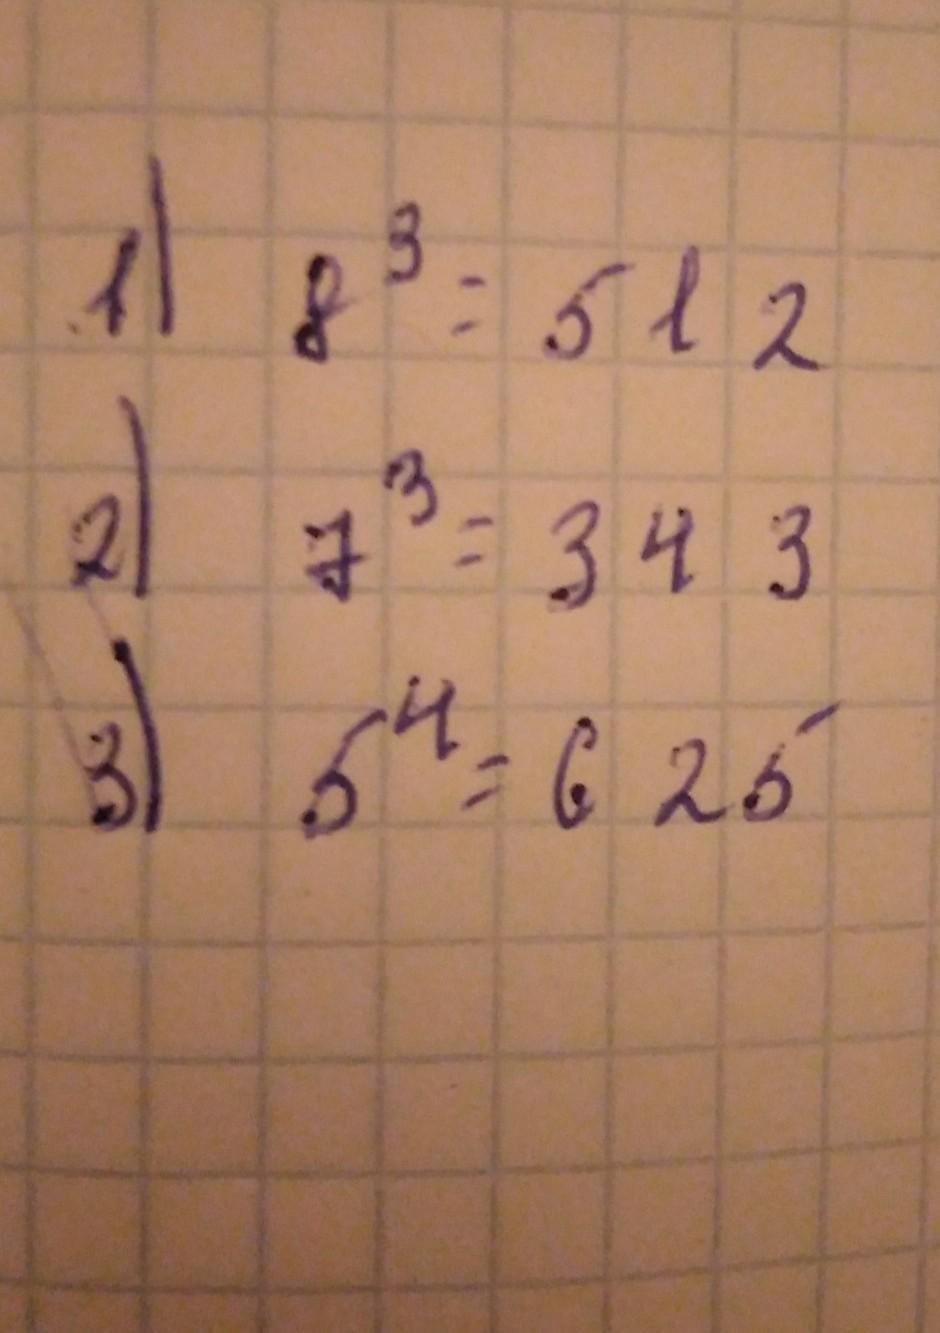 1) 8³ = 512
2) 7³ = 343
3) 5⁴ = 625